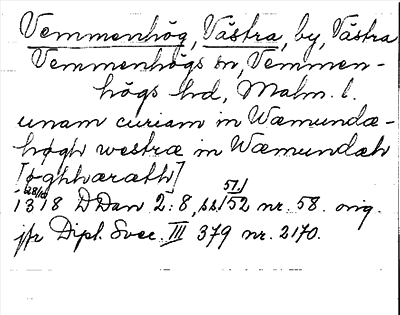 Vemmenhög, Västra, by, Västra
Vemmenhögs sn, Vemmen-
högs hd, Malm. l.
unam curiam in Wæmundæ-
høgh westræ in Wæmundæh
[øghhæræth]
1318 28/10 DDan 2:8, s. 151 f 52 nr. 58. orig.
jfr Dipl. Svec. III 379 nr. 2170.